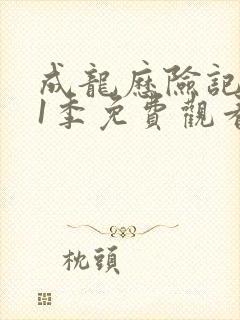 成龍歷險記
1季免費觀看
枕頭